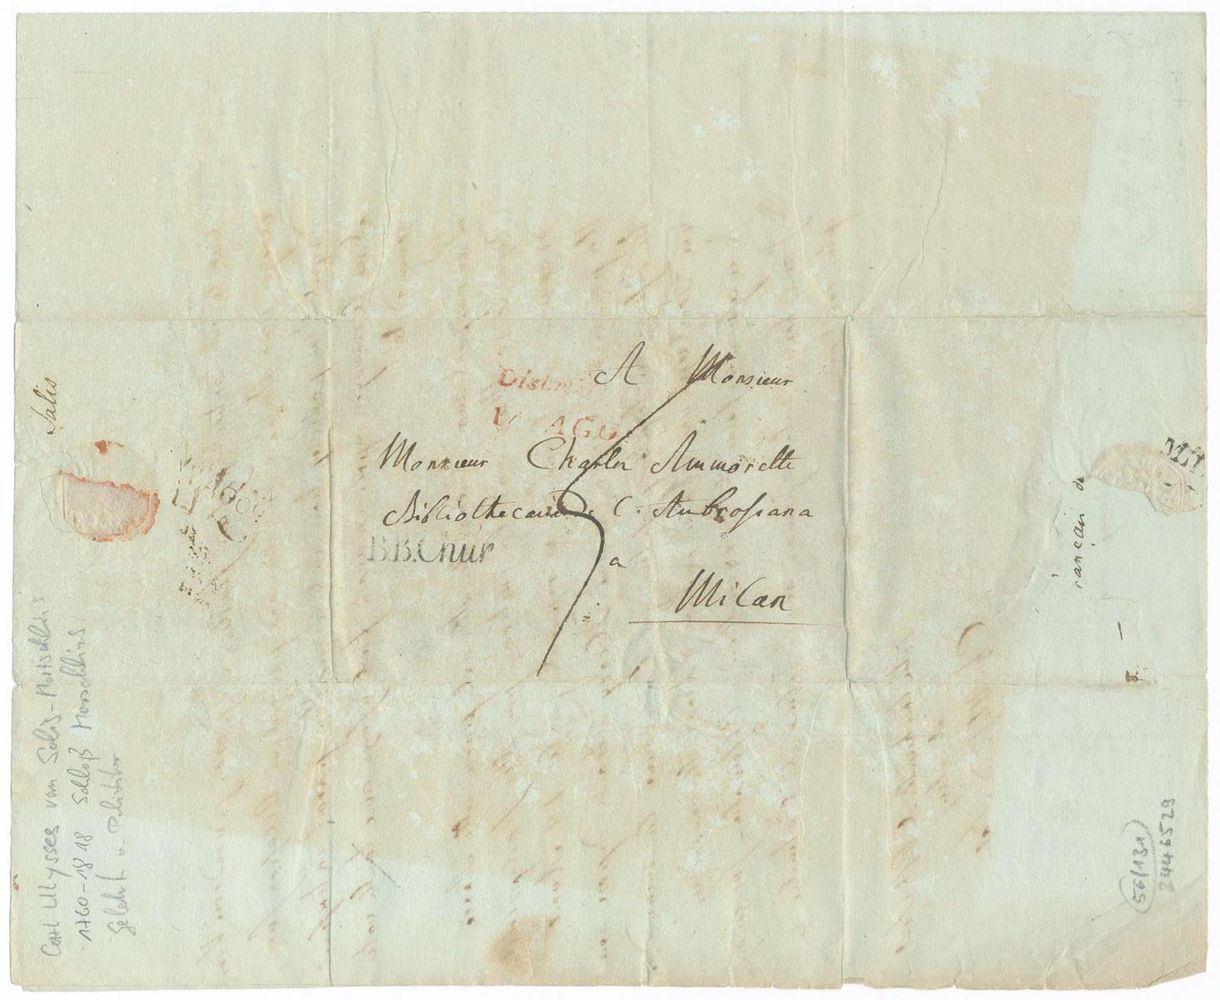 A Monsieur
Monsieur Charles Ammorette
Bibliothecaire C. Ambrosiana
a
Milan
B.B.Chur
AGO
Salis
Carl Ulysses von Salis-Marschlins
1760-1818 Schloß Marschlins
Gelehrt. u. Politiker
56/131
2446529